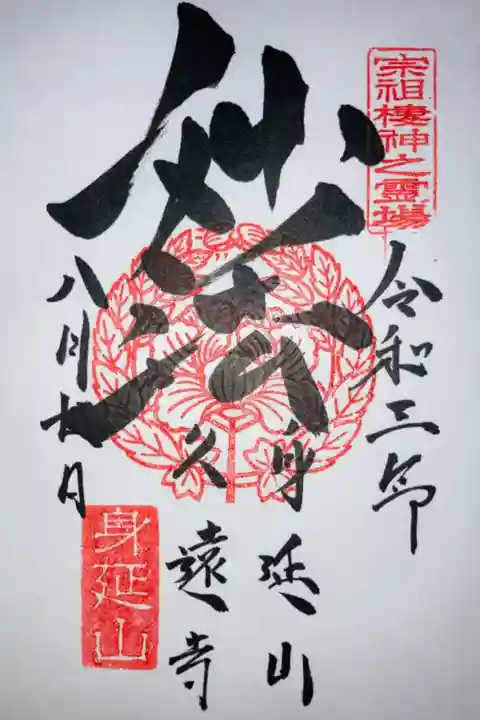 宗祖棲神之霊場
令和三年
妙法
身延山
久遠寺
八月九日
身延山